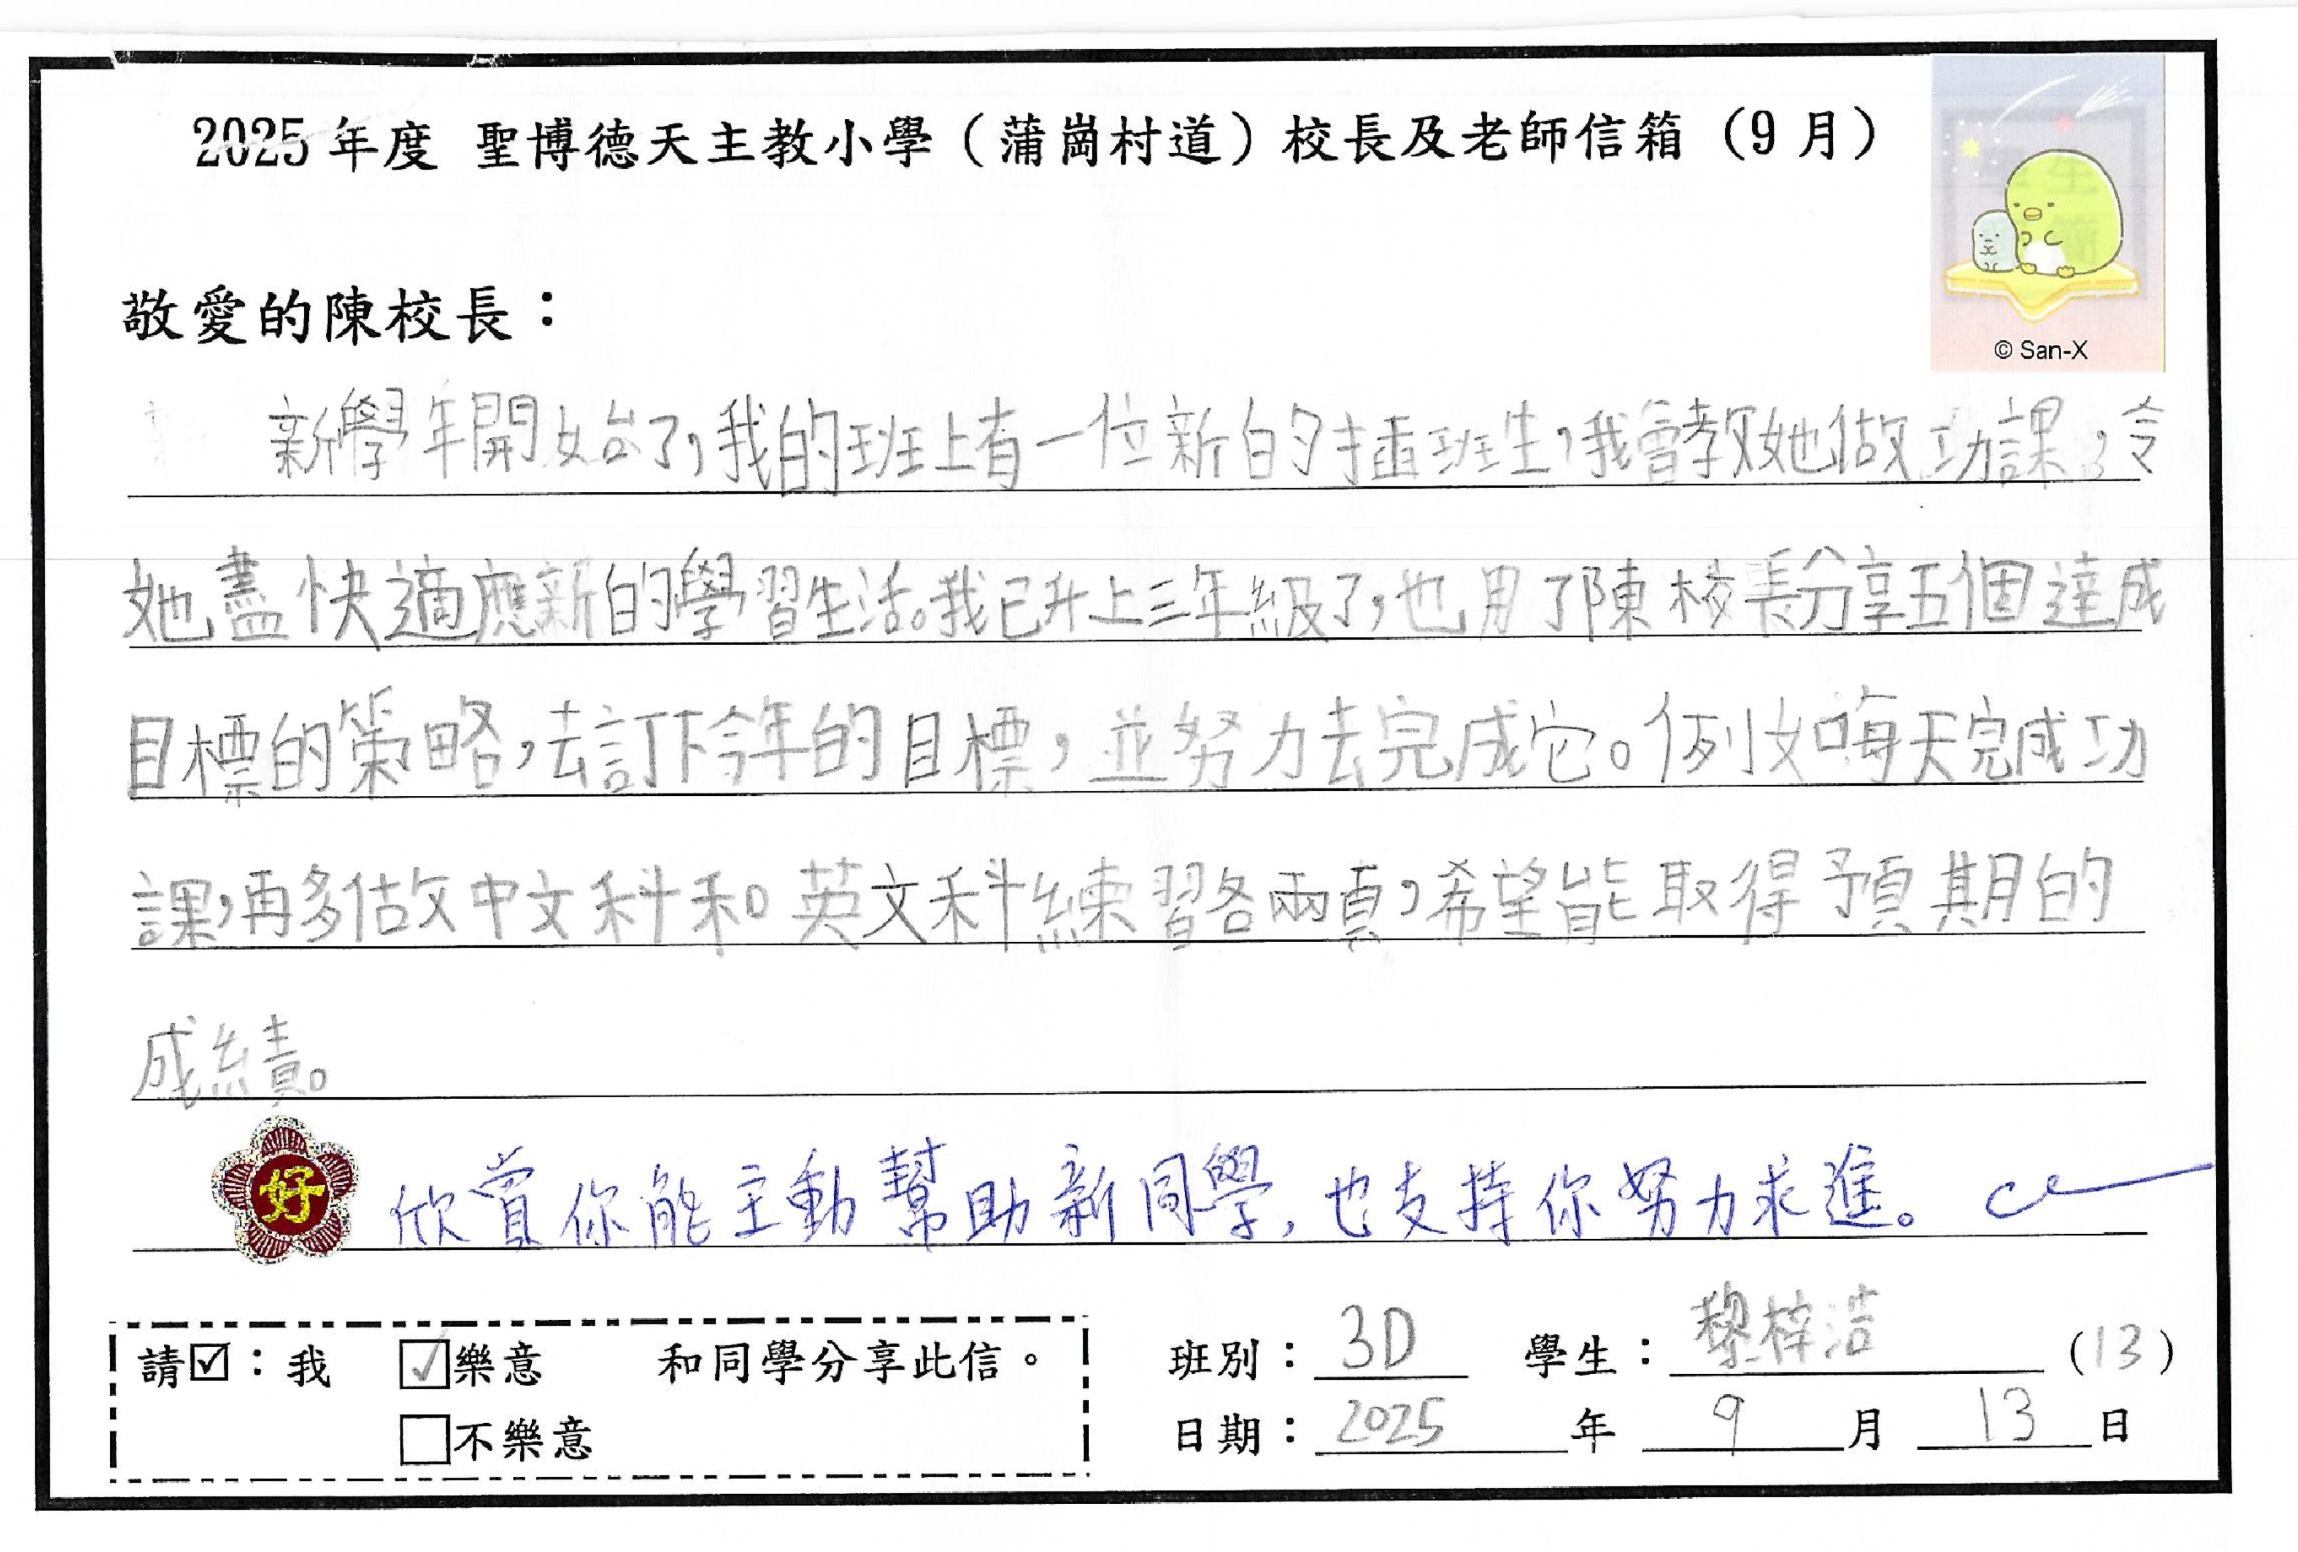 2025 年度 聖博德天主教小學（蒲崗村道）校長及老師信箱（9 月）
敬愛的陳校長：
© San-X
新學年開始了，我的班上有一位新的插班生，我會教她做功課，令
她盡快適應新的學習生活。我已升上三年級了，也用了陳校長分享五個達成
目標的策略，去訂下今年的目標，並努力去完成它。例如每天完成功
課，再多做中文科和英文科練習各兩頁，希望能取得預期的
成績。
好 欣賞你能主動幫助新同學，也支持你努力求進。
請☑：我 ☑樂意 和同學分享此信。
□不樂意
班別：3D 學生：黎梓浩（13）
日期：2025 年 9 月 13 日